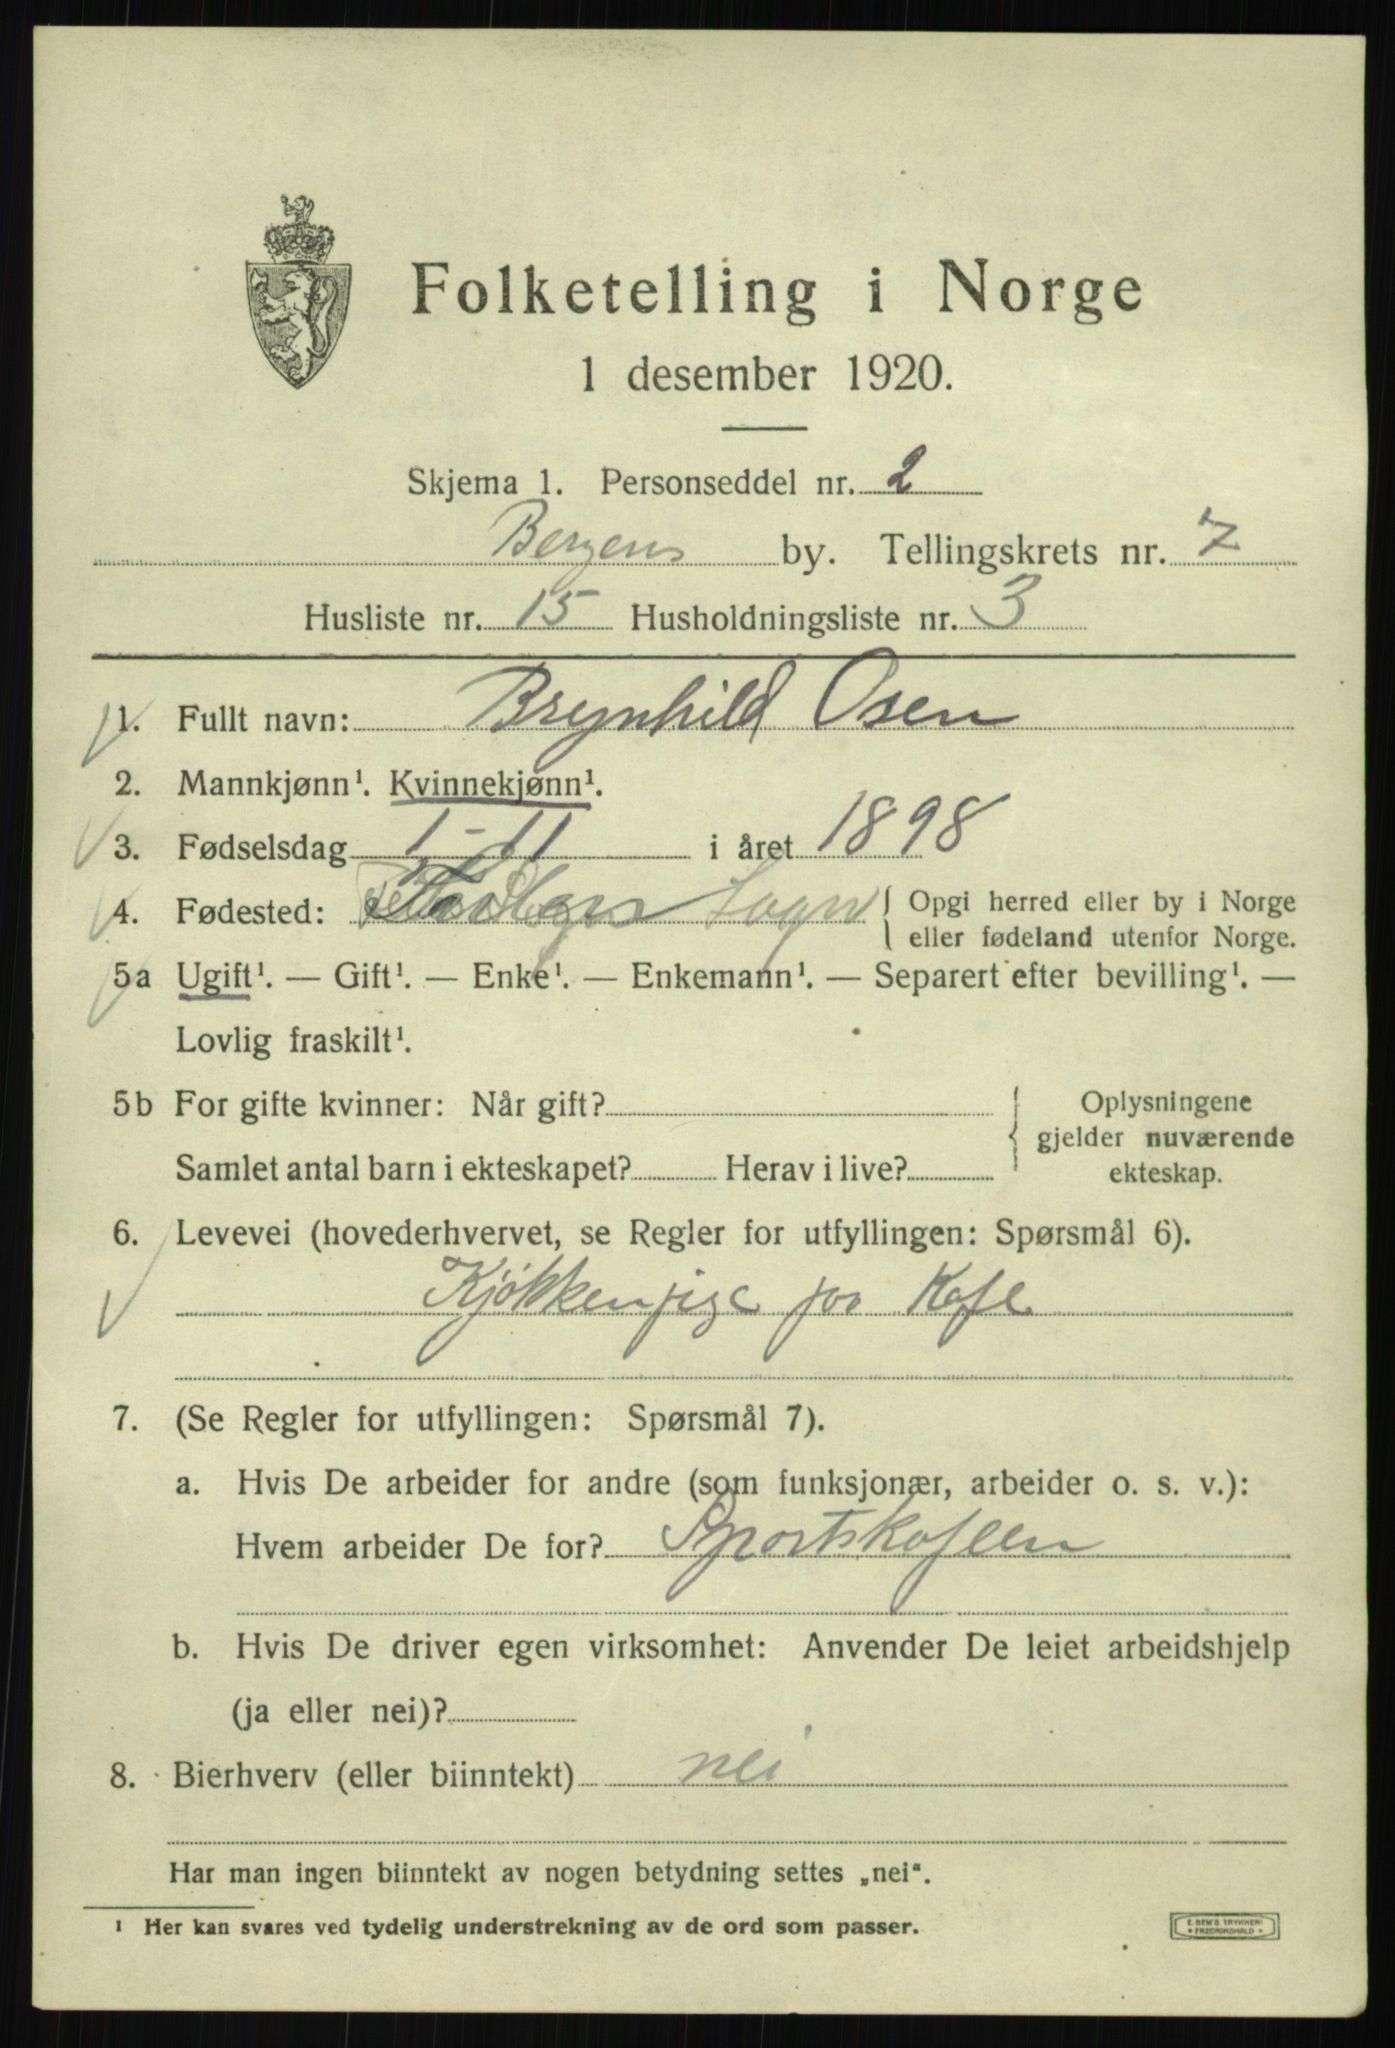 Folketelling i Norge
1 desember 1920.
Skjema 1. Personseddel nr. 2
Bergens by. Tellingskrets nr. 7
Husliste nr. 15 Husholdningsliste nr. 3
1. Fullt navn: Brynhild Osen
2. Mannkjønn¹. Kvinnekjønn¹.
3. Fødselsdag 1-11 i året 1898
4. Fødested: Sogn { Opgi herred eller by i Norge
eller fødeland utenfor Norge.
5a Ugift¹. — Gift¹. — Enke¹. — Enkemann¹. — Separert efter bevilling¹. —
Lovlig fraskilt¹.
5b For gifte kvinner: Når gift? } Oplysningene
gjelder nuværende
Samlet antal barn i ekteskapet? Herav i live? ekteskap.
6. Levevei (hovederhvervet, se Regler for utfyllingen: Spørsmål 6).
Kjøkkenpige for Kafe
7. (Se Regler for utfyllingen: Spørsmål 7).
a. Hvis De arbeider for andre (som funksjonær, arbeider o. s. v.):
Hvem arbeider De for? Sportskafeen
b. Hvis De driver egen virksomhet: Anvender De leiet arbeidshjelp
(ja eller nei)?
8. Bierhverv (eller biinntekt) nei
Har man ingen biinntekt av nogen betydning settes „nei“.
¹ Her kan svares ved tydelig understrekning av de ord som passer.
E. SEM'S TRYKKERI
FREDRIKSHALD